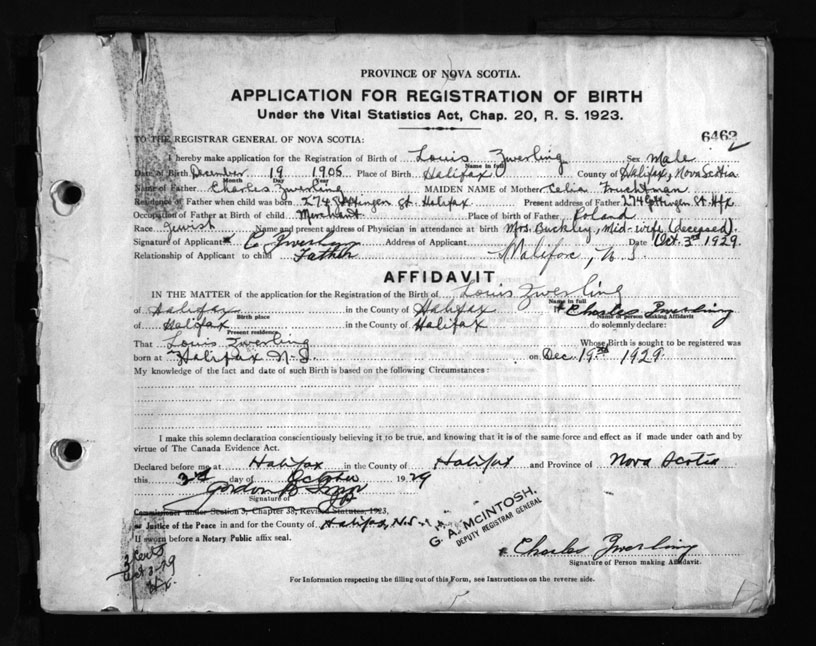 PROVINCE OF NOVA SCOTIA.
APPLICATION FOR REGISTRATION OF BIRTH
Under the Vital Statistics Act, Chap. 20, R. S. 1923.
TO THE REGISTRAR GENERAL OF NOVA SCOTIA:
6462
I hereby make application for the Registration of Birth of Louis Zwerling Sex Male
Name in full
Date of Birth December 19 1905 Place of Birth Halifax County of Halifax, Nova Scotia
Month Day Year
Name of Father Charles Zwerling MAIDEN NAME of Mother Celia Fruchtman
Residence of Father when child was born 274 Gottingen St. Halifax Present address of Father 274 Gottingen St. Hfx
Occupation of Father at Birth of child Merchant Place of birth of Father Poland
Race Jewish Name and present address of Physician in attendance at birth Mrs. Buckley, Mid-wife (deceased).
Signature of Applicant C Zwerling Address of Applicant Halifax, N.S. Date Oct. 3rd 1929
Relationship of Applicant to child Father
AFFIDAVIT
IN THE MATTER of the application for the Registration of the Birth of Louis Zwerling
Name in full
of Halifax in the County of Halifax Charles Zwerling
Birth place Name of Person making Affidavit
of Halifax in the County of Halifax do solemnly declare:
Present residence.
That Louis Zwerling Whose Birth is sought to be registered was
born at Halifax N.S. on Dec. 19th 1929
My knowledge of the fact and date of such Birth is based on the following Circumstances:
I make this solemn declaration conscientiously believing it to be true, and knowing that it is of the same force and effect as if made under oath and by
virtue of The Canada Evidence Act.
Declared before me at Halifax in the County of Halifax and Province of Nova Scotia
this 3rd day of October 1929
Gordon B
Signature of
Commissioner under Section 3, Chapter 38, Revised Statutes, 1923,
or Justice of the Peace in and for the County of Halifax, N.S.
If sworn before a Notary Public affix seal.
G. A. McINTOSH,
DEPUTY REGISTRAR GENERAL
Charles Zwerling
Signature of Person making Affidavit.
Oct 3-29
For Information respecting the filling out of this Form, see Instructions on the reverse side.